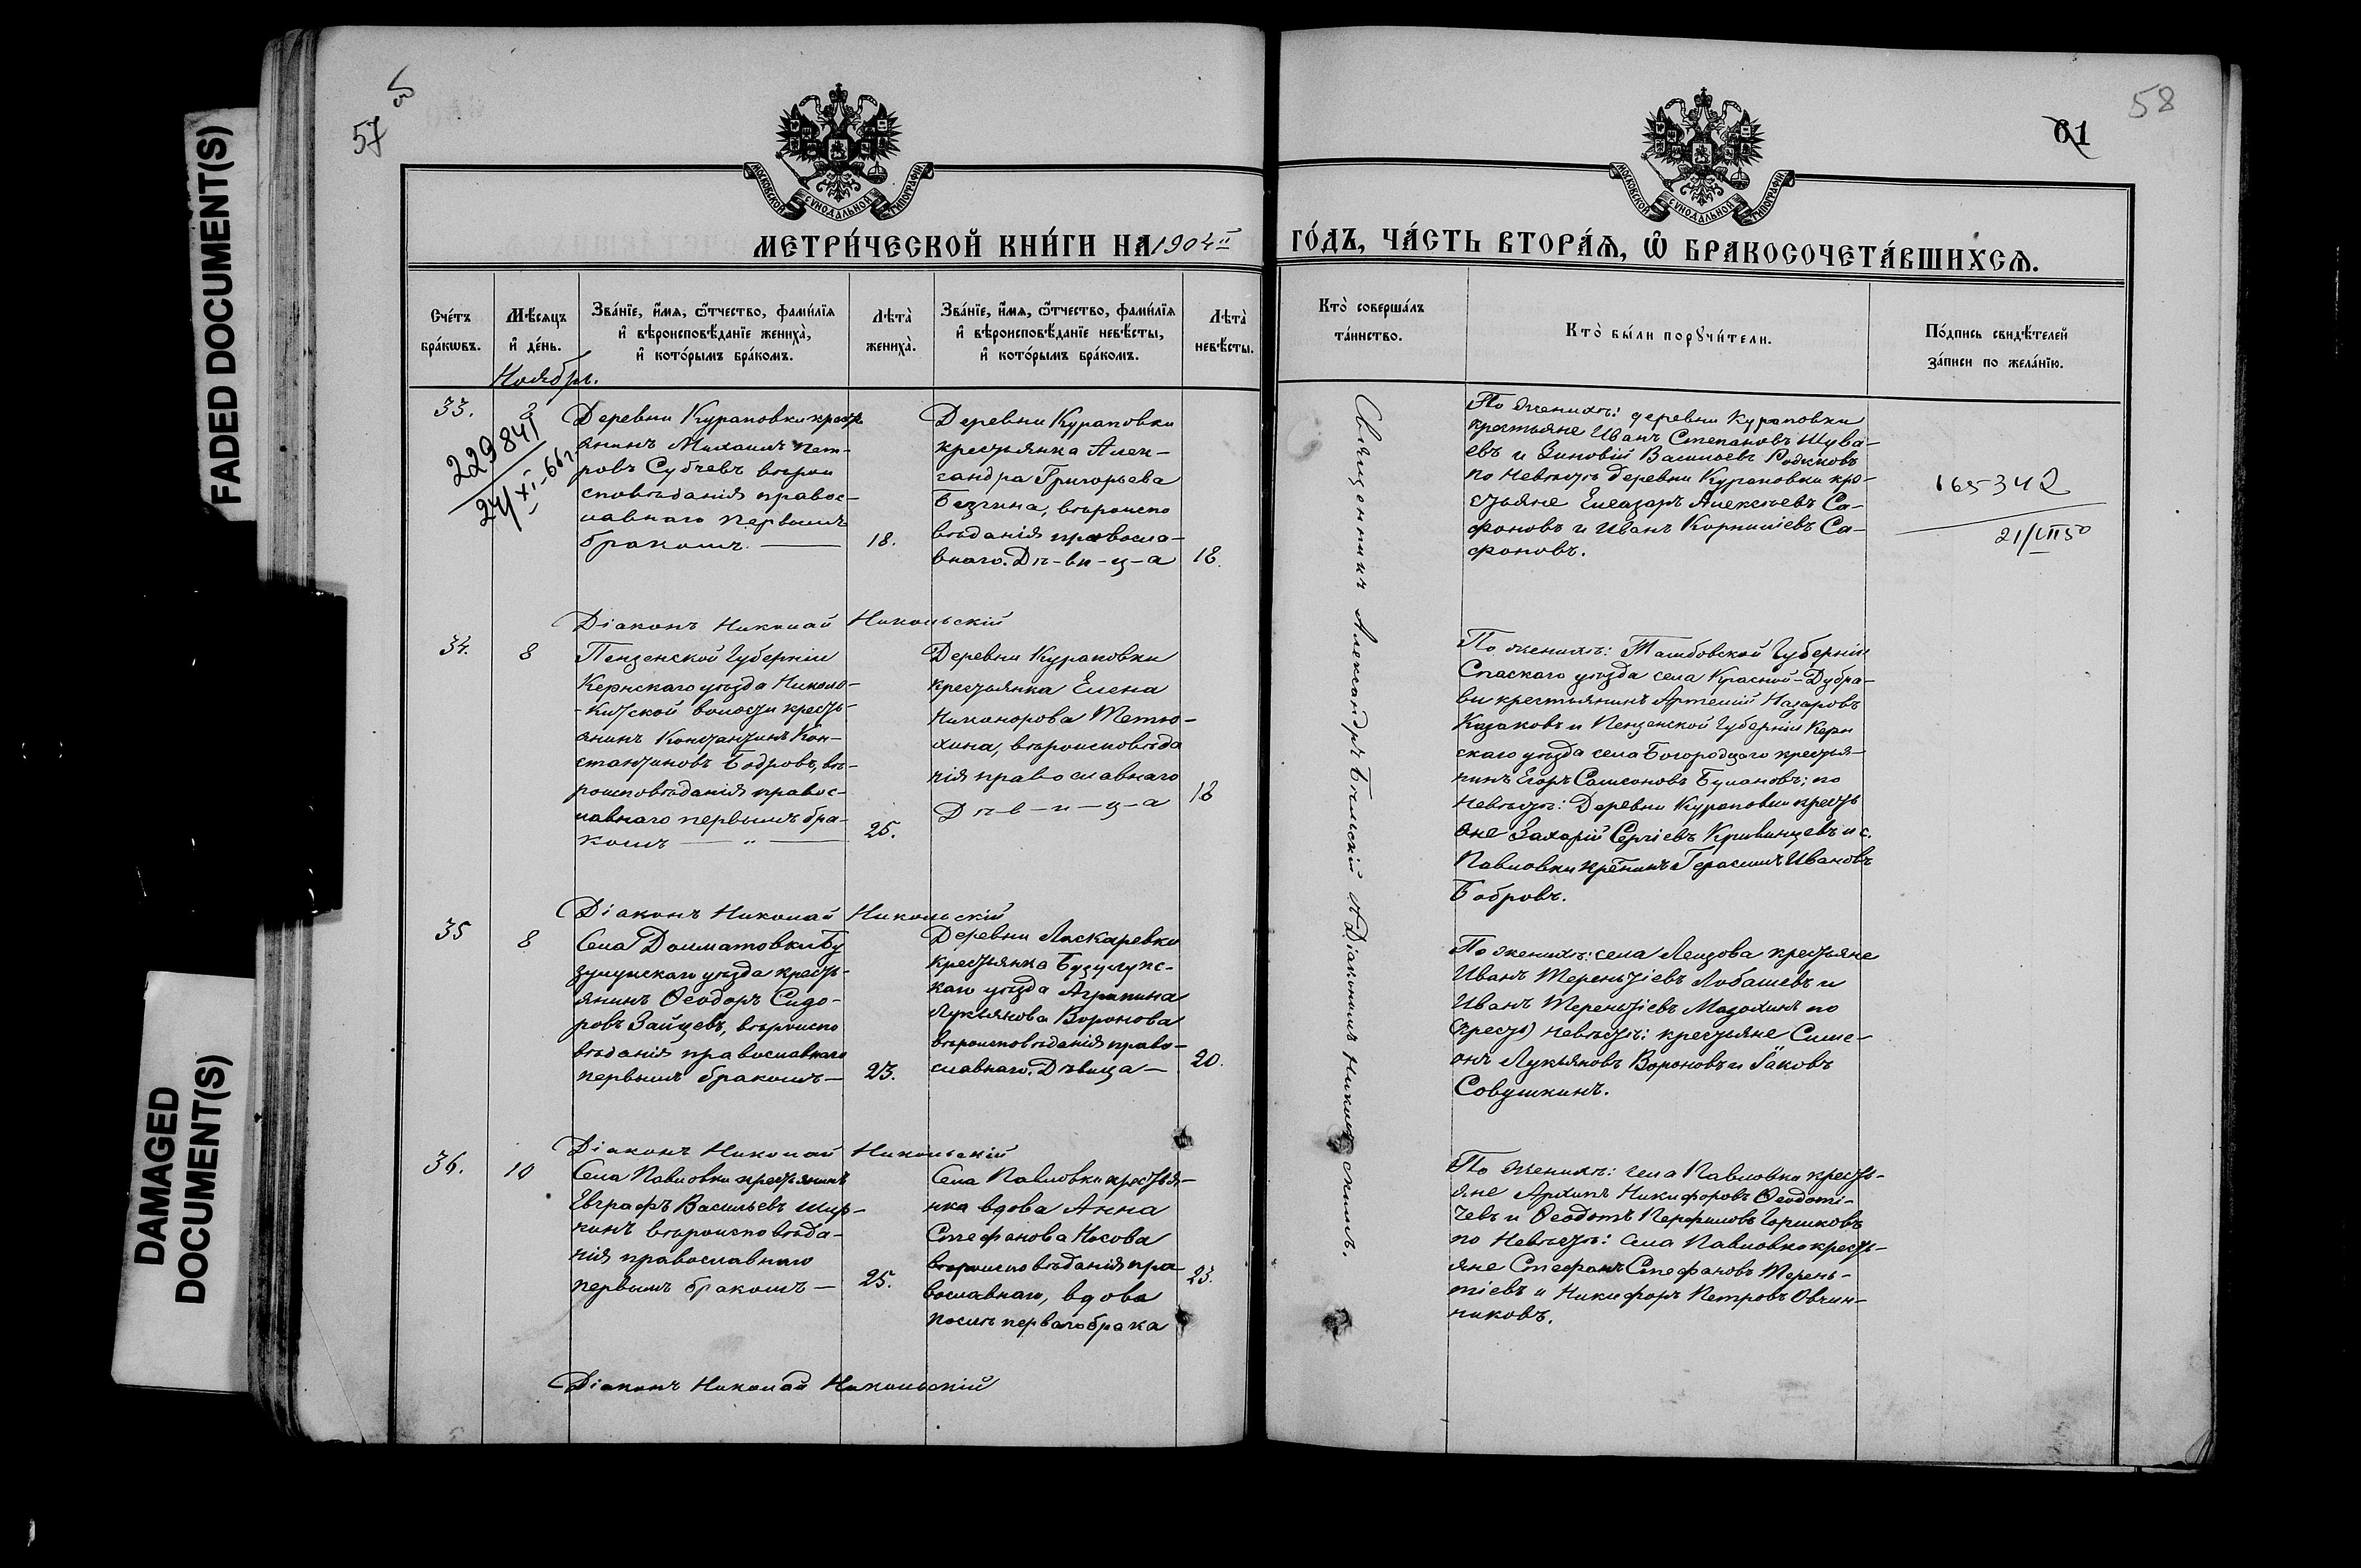 FADED DOCUMENT(S)
DAMAGED
DOCUMENT(S)
57
58
61
МОСКОВСКОЙ СѴНОДАЛЬНОЙ ТИПОГРАФІИ
МОСКОВСКОЙ СѴНОДАЛЬНОЙ ТИПОГРАФІИ
МЕТРИ́ЧЕСКОЙ КНИ́ГИ НА 1904й ГО́ДЪ, ЧА́СТЬ ВТОРА́Ѧ, Ѽ БРАКОСОЧЕТА́ВШИХСѦ.
Сче́тъ
бра́кѡвъ.
Мѣ́сяцъ
и҆ де́нь.
Ноябрь.
Зва́нїе, и҆́мя, ѻ҆́тчество, фами́лїя
и҆ вѣроисповѣ́данїе жениха̀,
и҆ кото́рымъ бра́комъ.
Лѣта̀
жениха̀.
Зва́нїе, и҆́мя, ѻ҆́тчество, фами́лїя
и҆ вѣроисповѣ́данїе невѣ́сты,
и҆ кото́рымъ бра́комъ.
Лѣта̀
невѣ́сты.
Кто̀ соверша́лъ
та́инство.
Кто̀ бы́ли порꙋчи́тели.
По́дпись свидѣ́телей
за́писи по жела́нїю.
33.
229841
24/XI-66г
Деревни Кураповки кресть
янинъ Михаилъ Пет-
ровъ Субчевъ вѣрои
сповѣданія правос-
лавнаго первымъ
бракомъ. —
18.
Деревни Кураповки
крестьянка Алек-
сандра Григорьева
Безгина, вѣроиспо
вѣданія правосла-
внаго. Дѣ-ви-ц-а
18.
По женихѣ: деревни Кураповки
крестьяне Иванъ Степановъ Шува-
евъ и Зиновій Васильевъ Родіковъ
по невѣстѣ деревни Кураповки кре-
стьяне Елеазаръ Алексѣевъ Са-
фоновъ и Иванъ Корниліевъ Са-
фоновъ.
165342
21/VII 50
Діаконъ Николай Никольскій
34.
8
Пензенской Губерніи
Керенскаго уѣзда Николо-
-Китской волости кресть-
янинъ Константинъ Кон-
стантиновъ Бодровъ, вѣ-
роисповѣданія правос-
лавнаго первымъ бра-
комъ — " —
25.
Деревни Кураповки
крестьянка Елена
Никонорова Тетю-
хина, вѣроисповѣда
нія православнаго
Дѣ-в-и-ц-а
18
По женихѣ: Тамбовской Губерніи
Спаскаго уѣзда села Красной-Дубра-
вы крестьянинъ Артемій Назаровъ
Казаковъ и Пензенской Губерніи Керен
скаго уѣзда села Богородскаго крестья-
нинъ Егоръ Самсоновъ Булановъ; по
невѣстѣ: Деревни Кураповки кресть
яне Захарій Сергіевъ Кривинцевъ и с.
Павловки кре-нинъ Герасимъ Ивановъ
Бобровъ.
Діаконъ Николай Никольскій
35
8
Села Долматовки Бу
зулукскаго уѣзда кресть-
янинъ Ѳеодоръ Сидо-
ровъ Зайцевъ, вѣроиспо
вѣданія православнаго
первымъ бракомъ —
23.
Деревни Ласкаревки
крестьянка Бузулукс-
каго уѣзда Агрипина
Лукьянова Воронова
вѣроисповѣданія право-
славнаго. Дѣвица —
20.
По женихѣ: села крестьяне
Иванъ Терентіевъ Лобашевъ и
Иванъ Терентіевъ Мазохинъ по
(крест) невѣстѣ: крестьяне Симе-
онъ Лукьяновъ Вороновъ и Іаковъ
Совушкинъ.
Діаконъ Николай Никольскій
36.
10
Села Павловки крестьянинъ
Евграфъ Васильевъ Шир-
нинъ вѣроисповѣда-
нія православнаго
первымъ бракомъ —
25.
Села Павловки крестья-
нка вдова Анна
Стефанова Носова
вѣроисповѣданія пра-
вославнаго, вдова
послѣ перваго брака
23.
По женихѣ: села Павловки кресть-
яне Архипъ Никифоровъ Ѳеодоті-
чевъ и Ѳеодотъ Перфиловъ Горшковъ
по невѣстѣ: села Павловки кресть-
яне Стефанъ Стефановъ Терень-
тіевъ и Никифоръ Петровъ Овчин-
никовъ.
Діаконъ Николай Никольскій
Священникъ Александръ Бѣльскій съ Діакономъ Никольскимъ.